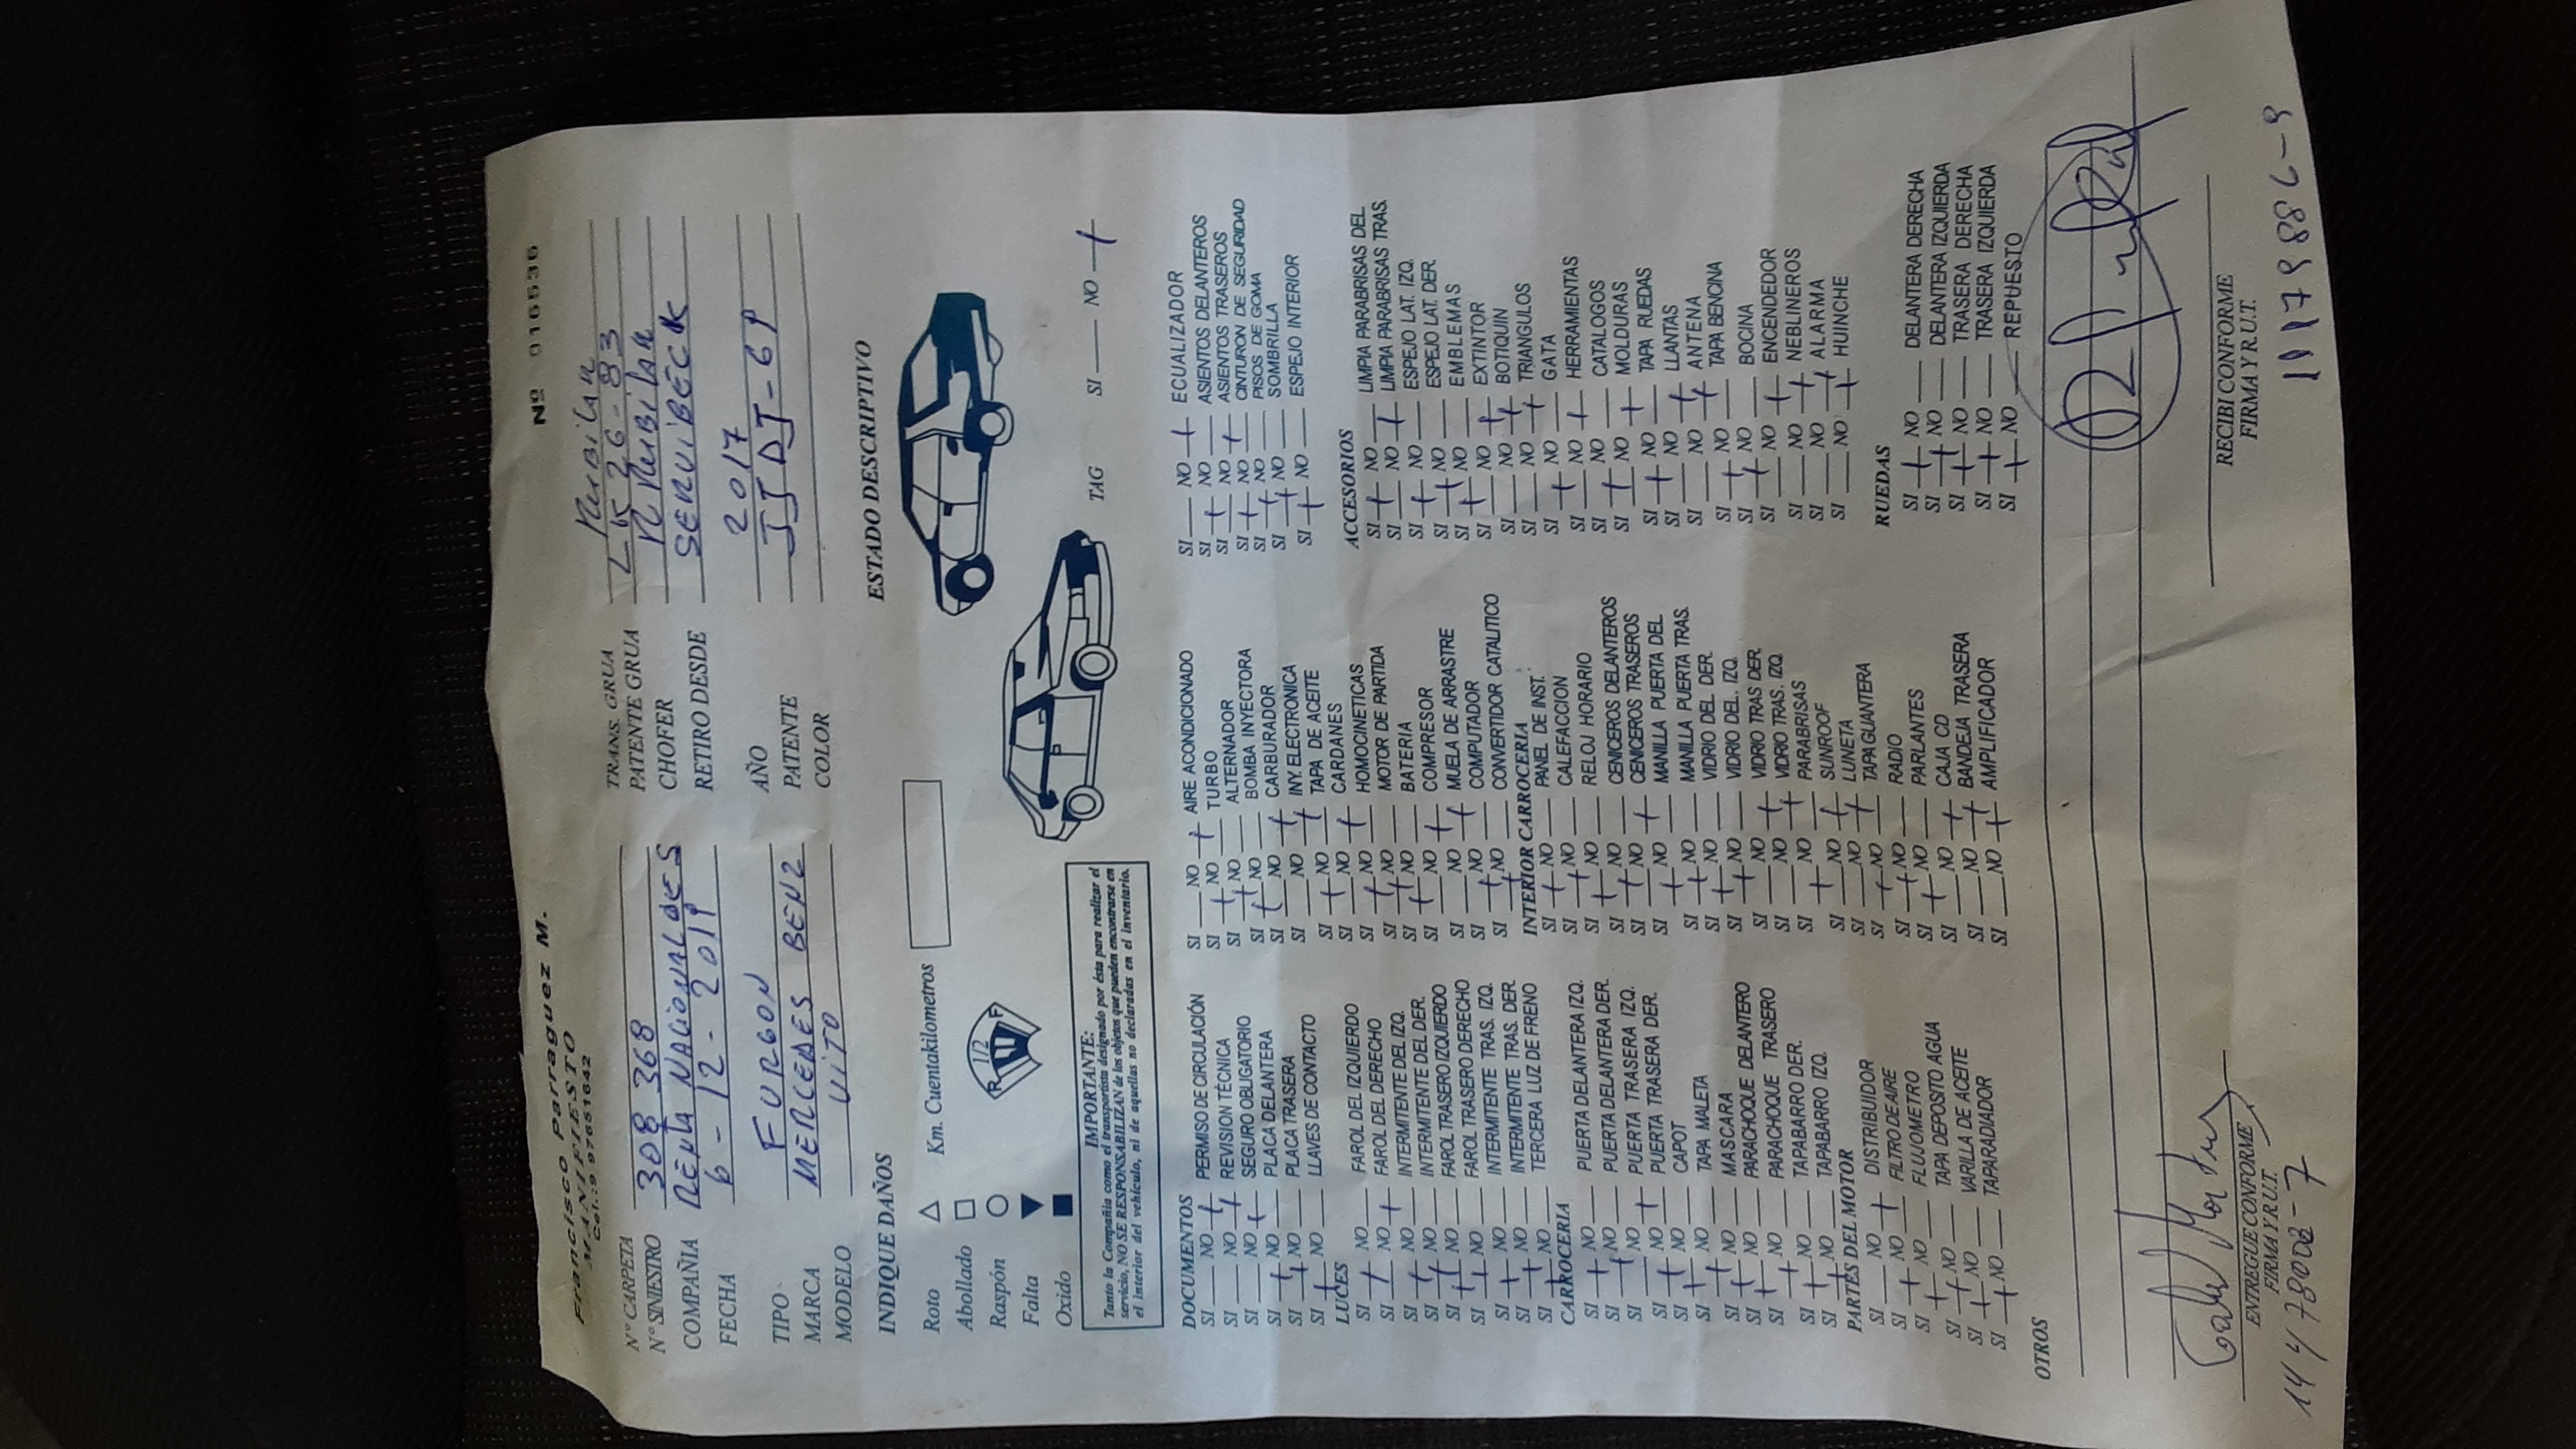 Francisco Parraguez M.
MANIFIESTO
Cel.: 9 97651642
Nº 016536
Nº CARPETA
TRANS. GRUA Rubilar
Nº SINIESTRO 308 368
PATENTE GRUA LK 26-83
COMPAÑIA RENTA NACIONAL
CHOFER R Rubilar
FECHA 6-12-2019
RETIRO DESDE SERVIBECK
TIPO FURGON
AÑO 2017
MARCA MERCEDES BENZ
PATENTE JJDJ-69
MODELO VITO
COLOR
INDIQUE DAÑOS
ESTADO DESCRIPTIVO
Roto
Km. Cuentakilometros
Abollado
Raspón
R 1/2 F
Falta
Oxido
TAG SI NO +
IMPORTANTE:
Tanto la Compañia como el transportista designado por ésta para realizar el
servicio, NO SE RESPONSABILIZAN de los objetos que pueden encontrarse en
el interior del vehículo, ni de aquellas no declaradas en el inventario.
DOCUMENTOS
SI NO + PERMISO DE CIRCULACIÓN
SI NO + REVISION TÉCNICA
SI NO + SEGURO OBLIGATORIO
SI + NO PLACA DELANTERA
SI + NO PLACA TRASERA
SI + NO LLAVES DE CONTACTO
LUCES
SI + NO FAROL DEL IZQUIERDO
SI NO + FAROL DEL DERECHO
SI + NO INTERMITENTE DEL IZQ.
SI + NO INTERMITENTE DEL DER.
SI + NO FAROL TRASERO IZQUIERDO
SI + NO FAROL TRASERO DERECHO
SI + NO INTERMITENTE TRAS. IZQ.
SI + NO INTERMITENTE TRAS. DER.
SI + NO TERCERA LUZ DE FRENO
CARROCERIA
SI + NO PUERTA DELANTERA IZQ.
SI + NO PUERTA DELANTERA DER.
SI NO + PUERTA TRASERA IZQ.
SI + NO PUERTA TRASERA DER.
SI + NO CAPOT
SI + NO TAPA MALETA
SI + NO MASCARA
SI + NO PARACHOQUE DELANTERO
SI + NO PARACHOQUE TRASERO
SI + NO TAPABARRO DER.
SI + NO TAPABARRO IZQ.
PARTES DEL MOTOR
SI NO + DISTRIBUIDOR
SI + NO FILTRO DE AIRE
SI + NO FLUJOMETRO
SI + NO TAPA DEPOSITO AGUA
SI + NO VARILLA DE ACEITE
SI + NO TAPARADIADOR
SI NO + AIRE ACONDICIONADO
SI + NO TURBO
SI + NO ALTERNADOR
SI + NO BOMBA INYECTORA
SI NO + CARBURADOR
SI NO + INY. ELECTRONICA
SI + NO TAPA DE ACEITE
SI NO + CARDANES
SI + NO HOMOCINETICAS
SI + NO MOTOR DE PARTIDA
SI + NO BATERIA
SI NO + COMPRESOR
SI NO + MUELA DE ARRASTRE
SI + NO COMPUTADOR
SI + NO CONVERTIDOR CATALITICO
INTERIOR CARROCERIA
SI + NO PANEL DE INST.
SI + NO CALEFACCION
SI + NO RELOJ HORARIO
SI + NO CENICEROS DELANTEROS
SI NO + CENICEROS TRASEROS
SI + NO MANILLA PUERTA DEL
SI + NO MANILLA PUERTA TRAS.
SI + NO VIDRIO DEL DER.
SI + NO VIDRIO DEL. IZQ.
SI NO + VIDRIO TRAS DER.
SI NO + VIDRIO TRAS. IZQ.
SI + NO PARABRISAS
SI NO + SUNROOF
SI NO + LUNETA
SI + NO TAPA GUANTERA
SI + NO RADIO
SI + NO PARLANTES
SI NO + CAJA CD
SI NO + BANDEJA TRASERA
SI NO + AMPLIFICADOR
SI NO + ECUALIZADOR
SI + NO ASIENTOS DELANTEROS
SI NO + ASIENTOS TRASEROS
SI + NO CINTURON DE SEGURIDAD
SI + NO PISOS DE GOMA
SI + NO SOMBRILLA
SI + NO ESPEJO INTERIOR
ACCESORIOS
SI + NO LIMPIA PARABRISAS DEL.
SI NO + LIMPIA PARABRISAS TRAS.
SI + NO ESPEJO LAT. IZQ.
SI + NO ESPEJO LAT. DER.
SI + NO EMBLEMAS
SI NO + EXTINTOR
SI NO + BOTIQUIN
SI NO + TRIANGULOS
SI + NO GATA
SI NO + HERRAMIENTAS
SI + NO CATALOGOS
SI NO + MOLDURAS
SI + NO TAPA RUEDAS
SI NO + LLANTAS
SI NO + ANTENA
SI + NO TAPA BENCINA
SI + NO BOCINA
SI NO + ENCENDEDOR
SI NO + NEBLINEROS
SI NO + ALARMA
SI NO + HUINCHE
RUEDAS
SI + NO DELANTERA DERECHA
SI + NO DELANTERA IZQUIERDA
SI + NO TRASERA DERECHA
SI + NO TRASERA IZQUIERDA
SI + NO REPUESTO
OTROS
ENTREGUE CONFORME
FIRMA Y R.U.T.
RECIBI CONFORME
FIRMA Y R.U.T.